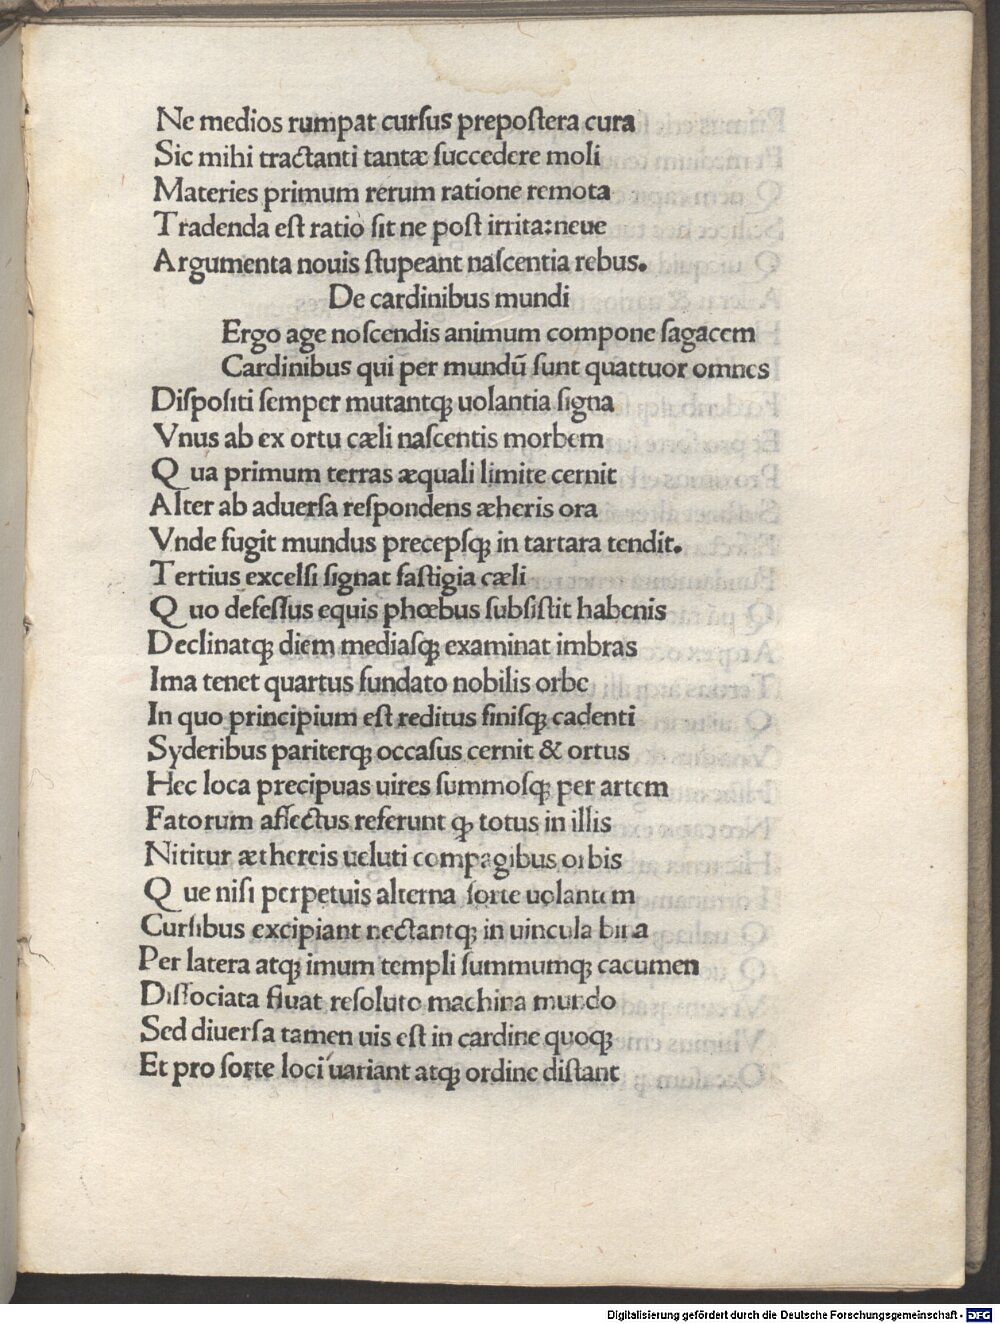 Ne medios rumpat curſus prepoſtera cura
Sic mihi tractanti tantæ ſuccedere moli
Materies primum rerum ratione remota
Tradenda eſt ratio ſit ne poſt irrita:neue
Argumenta nouis ſtupeant naſcentia rebus.
De cardinibus mundi
Ergo age noſcendis animum compone ſagacem
Cardinibus qui per mundū ſunt quattuor omnes
Diſpoſiti ſemper mutantqꝫ uolantia ſigna
Vnus ab ex ortu cæli naſcentis morbem
Q ua primum terras æquali limite cernit
Alter ab aduerſa reſpondens ætheris ora
Vnde fugit mundus precepſqꝫ in tartara tendit.
Tertius excelſi ſignat faſtigia cæli
Q uo defeſſus equis phœbus ſubſiſtit habenis
Declinatqꝫ diem mediaſqꝫ examinat imbras
Ima tenet quartus fundato nobilis orbe
In quo principium eſt reditus finiſqꝫ cadenti
Syderibus pariterqꝫ occaſus cernit & ortus
Hec loca precipuas uires ſummoſqꝫ per artem
Fatorum affectus referunt qꝫ totus in illis
Nititur æthereis ueluti compagibus orbis
Q ue niſi perpetuis alterna ſorte uolantem
Curſibus excipiant nectantqꝫ in uincula bina
Per latera atqꝫ imum templi ſummumqꝫ cacumen
Diſſociata fluat reſoluto machina mundo
Sed diuerſa tamen uis eſt in cardine quoqꝫ
Et pro ſorte loci uariant atqꝫ ordine diſtant
Digitalisierung gefördert durch die Deutsche Forschungsgemeinschaft - DFG